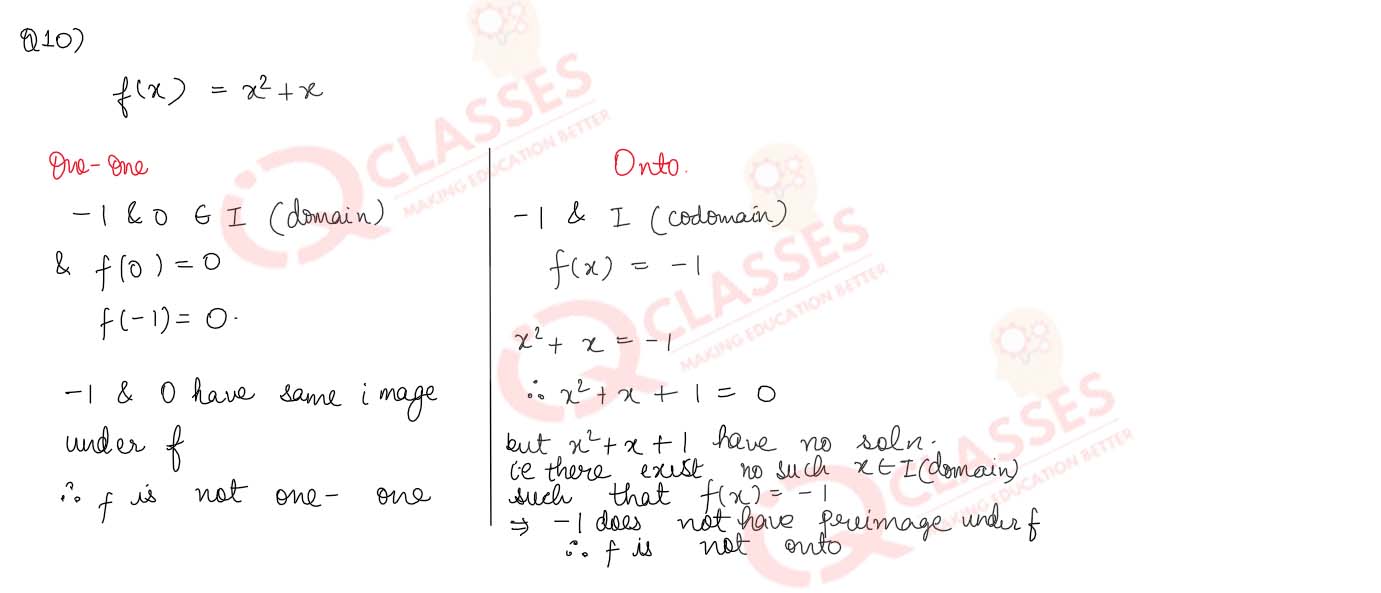 Q10)
f(x) = x²+x
One-One
-1 & 0 ∈ I (domain)
& f(0) = 0
f(-1) = 0.
-1 & 0 have same image
under f
∴ f is not one-one
Onto.
-1 & I (codomain)
f(x) = -1
x² + x = -1
∴ x² + x + 1 = 0
but x² + x + 1 have no soln.
ie there exist no such x ∈ I (domain)
such that f(x) = -1
⇒ -1 does not have preimage under f
∴ f is not onto
iQ CLASSES
MAKING EDUCATION BETTER
iQ CLASSES
MAKING EDUCATION BETTER
iQ CLASSES
MAKING EDUCATION BETTER